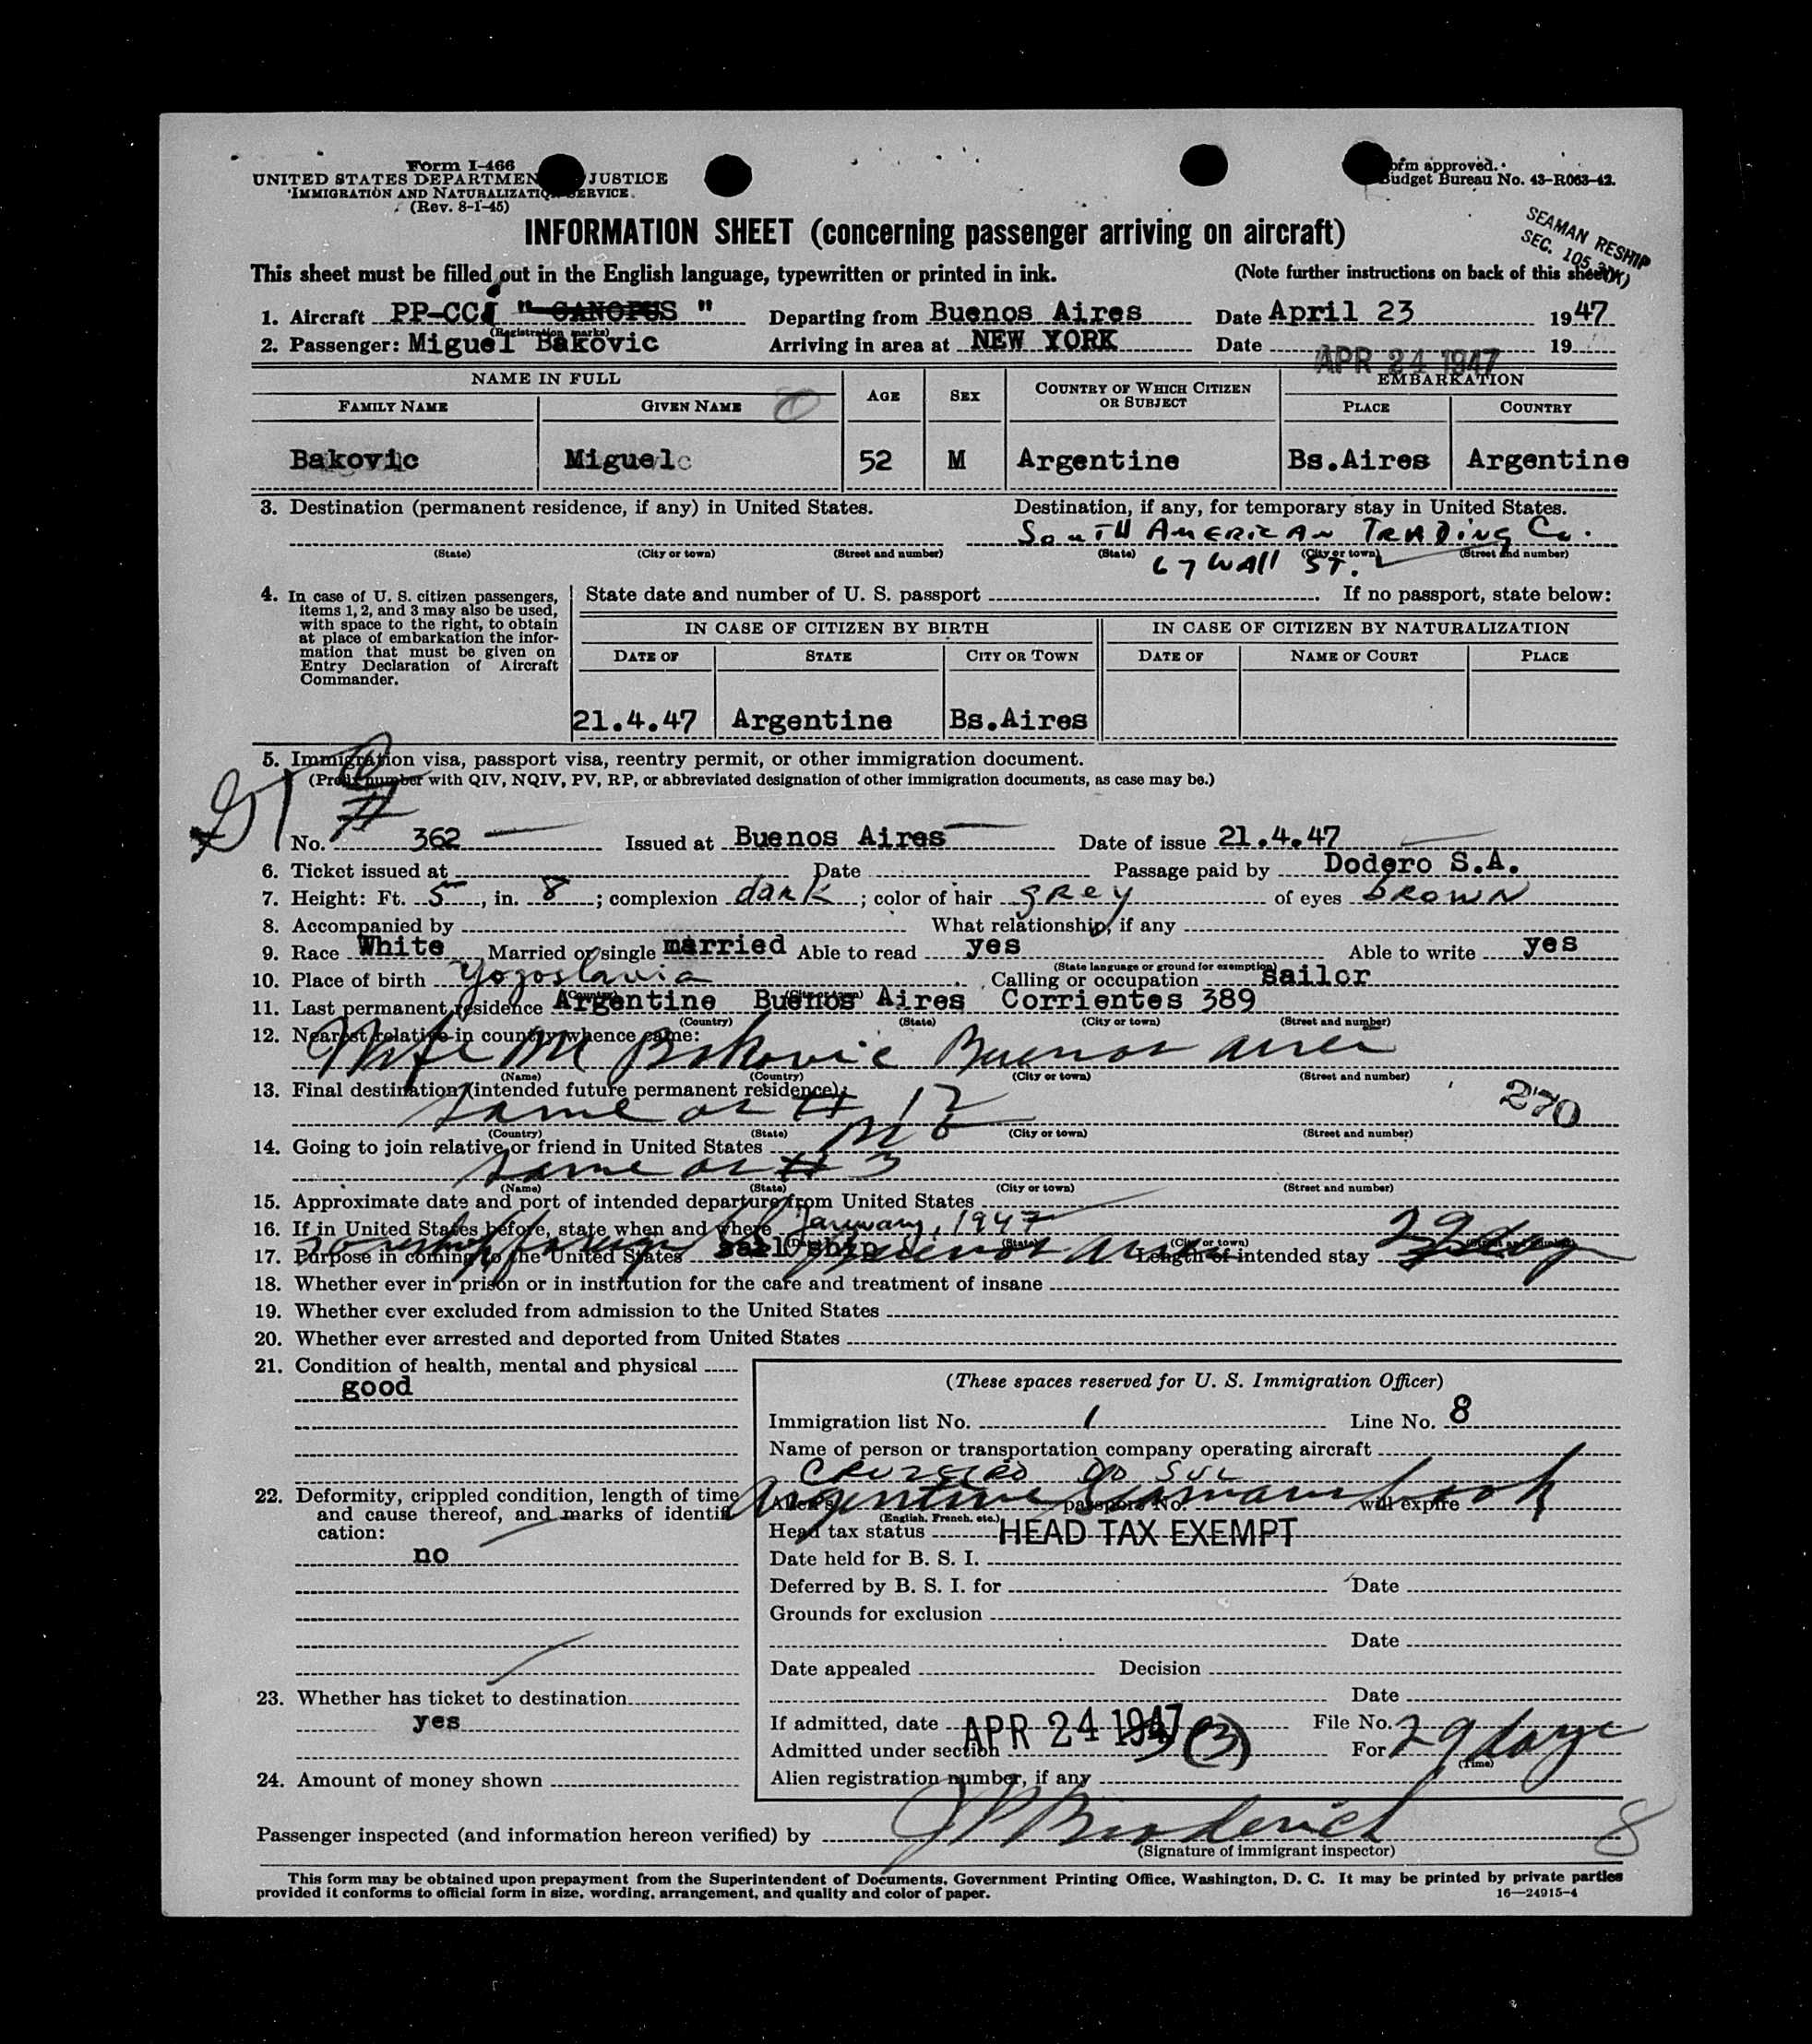 Form I-466
UNITED STATES DEPARTMEN JUSTICE
IMMIGRATION AND NATURALIZATIO SERVICE
(Rev. 8-1-45)
orm approved.
Budget Bureau No. 43-R063-42.
SEAMAN RESHIP
SEC. 105.3(K)
INFORMATION SHEET (concerning passenger arriving on aircraft)
This sheet must be filled out in the English language, typewritten or printed in ink. (Note further instructions on back of this sheet)
1. Aircraft PP-CCJ " CANOPUS " Departing from Buenos Aires Date April 23 1947
(Registration marks)
2. Passenger: Miguel Bakovic Arriving in area at NEW YORK Date APR 24 1947 19
NAME IN FULL AGE SEX COUNTRY OF WHICH CITIZEN OR SUBJECT EMBARKATION
FAMILY NAME GIVEN NAME PLACE COUNTRY
Bakovic Miguel 52 M Argentine Bs.Aires Argentine
3. Destination (permanent residence, if any) in United States. Destination, if any, for temporary stay in United States.
South American Trading Co.
(State) (City or town) (Street and number) (State) (City or town) (Street and number)
67 Wall St.
4. In case of U. S. citizen passengers, items 1, 2, and 3 may also be used, with space to the right, to obtain at place of embarkation the information that must be given on Entry Declaration of Aircraft Commander.
State date and number of U. S. passport If no passport, state below:
IN CASE OF CITIZEN BY BIRTH IN CASE OF CITIZEN BY NATURALIZATION
DATE OF STATE CITY OR TOWN DATE OF NAME OF COURT PLACE
21.4.47 Argentine Bs.Aires
5. Immigration visa, passport visa, reentry permit, or other immigration document.
(Prefix number with QIV, NQIV, PV, RP, or abbreviated designation of other immigration documents, as case may be.)
No. 362 Issued at Buenos Aires Date of issue 21.4.47
6. Ticket issued at Date Passage paid by Dodero S.A.
7. Height: Ft. 5, in. 8; complexion dark; color of hair grey of eyes brown
8. Accompanied by What relationship, if any
9. Race White Married or single married Able to read yes Able to write yes
(State language or ground for exemption)
10. Place of birth Yogoslavia Calling or occupation sailor
(Country) (City or town)
11. Last permanent residence Argentine Buenos Aires Corrientes 389
(Country) (State) (City or town) (Street and number)
12. Nearest relative in country whence came:
Wife M Bakovic Buenos Aires
(Name) (Country) (City or town) (Street and number)
13. Final destination (intended future permanent residence):
same as # 12
270
(Country) (State) (City or town) (Street and number)
14. Going to join relative or friend in United States no
same as # 3
(Name) (State) (City or town) (Street and number)
15. Approximate date and port of intended departure from United States
16. If in United States before, state when and where January, 1947
(State) (City or town) (Street and number)
17. Purpose in coming to the United States sail ship Length of intended stay 29 days
18. Whether ever in prison or in institution for the care and treatment of insane
19. Whether ever excluded from admission to the United States
20. Whether ever arrested and deported from United States
21. Condition of health, mental and physical
good
22. Deformity, crippled condition, length of time and cause thereof, and marks of identification:
no
23. Whether has ticket to destination
yes
24. Amount of money shown
(These spaces reserved for U. S. Immigration Officer)
Immigration list No. 1 Line No. 8
Name of person or transportation company operating aircraft
CRUZEIRO DO SUL
Alien's Argentine Seamans book passport No. will expire
(English, French, etc.)
Head tax status HEAD TAX EXEMPT
Date held for B. S. I.
Deferred by B. S. I. for Date
Grounds for exclusion
Date
Date appealed Decision
Date
If admitted, date APR 24 1947 File No.
Admitted under section 3(3) For 29 days
(Time)
Alien registration number, if any
Passenger inspected (and information hereon verified) by J P Broderick 8
(Signature of immigrant inspector)
This form may be obtained upon prepayment from the Superintendent of Documents, Government Printing Office, Washington, D. C. It may be printed by private parties
provided it conforms to official form in size, wording, arrangement, and quality and color of paper. 16—24915-4